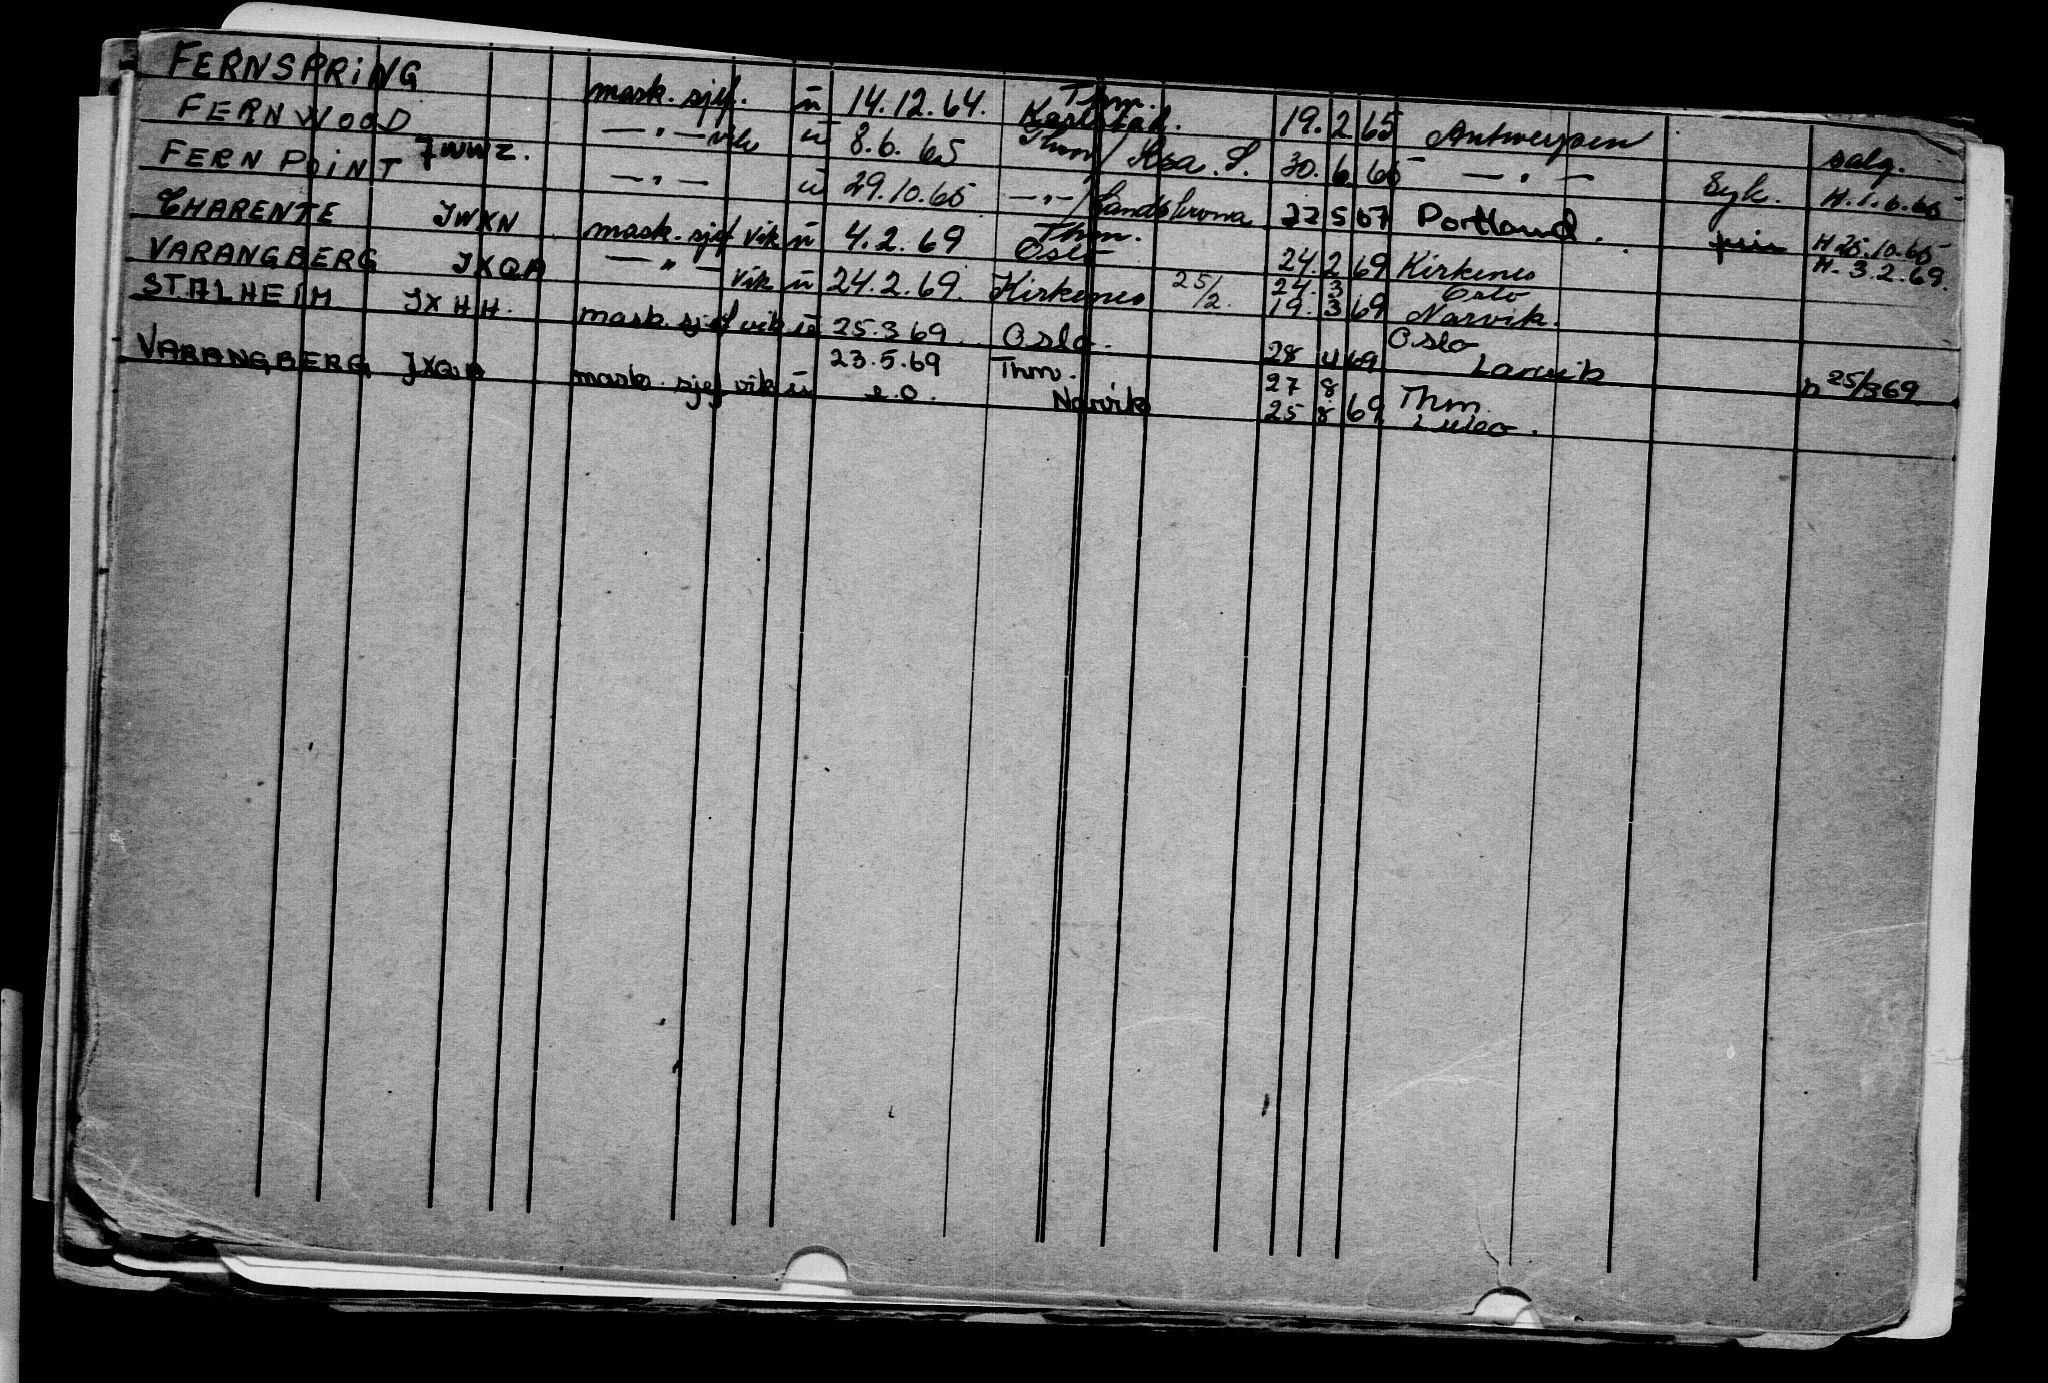 FERNSPRING mask. sjef. ü 14.12.64. Thm. Karlstad. 19. 2. 65 Antwerpen salg.
FERNWOOD JWWZ. — " — vik ü 8.6.65 Thm / Ksa. S. 30. 6. 65 — " — Syk. H. 1.6.65
FERN POINT — " — ü 29.10.65 — " — / Landskrona 22 5 67 Portland. H 25.10.65
CHARENTE JWXN mask. sjef vik ü 4.2.69 Thm. Oslo 24. 2 69 Kirkenes H. 3.2.69.
VARANGBERG JXQA — " — vik ü 24.2.69. Kirkenes 25/2. 24. 3 Oslo 19. 3 69 Narvik.
STALHEIM JXHH. mask. sjef vik ü 25.3.69. Oslo. 28 4 69 Oslo Larvik n 25/3 69
VARANGBERG JXQA mask. sjef vik ü 23.5.69 e.o. Thm. Narvik 27 8 25 8 69 Thm. Luleo.